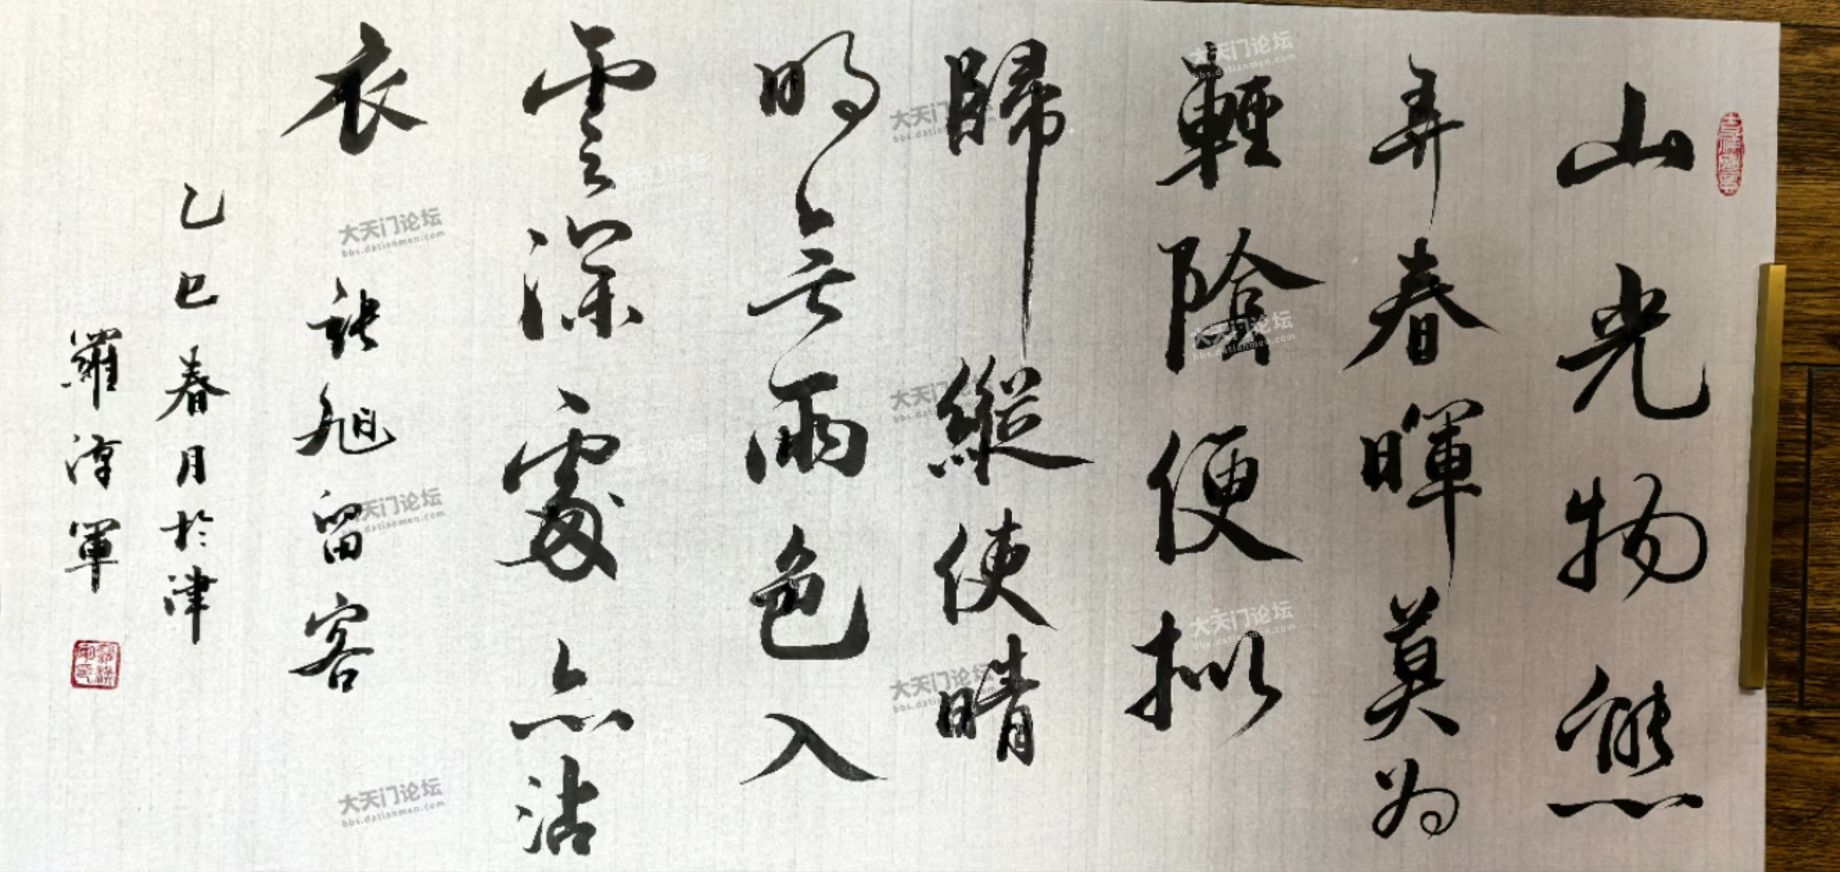 山光物態
弄春暉莫為
輕陰便擬
歸縱使晴
明無雨色入
雲深處亦沾
衣 張旭留客
乙巳春月於津
羅 軍
大天门论坛
bbs.datianmen.com
大天门论坛
bbs.datianmen.com
大天门论坛
bbs.datianmen.com
大天门论坛
bbs.datianmen.com
大天门论坛
bbs.datianmen.com
大天门论坛
bbs.datianmen.com
大天门论坛
bbs.datianmen.com
大天门论坛
bbs.datianmen.com
大天门论坛
bbs.datianmen.com